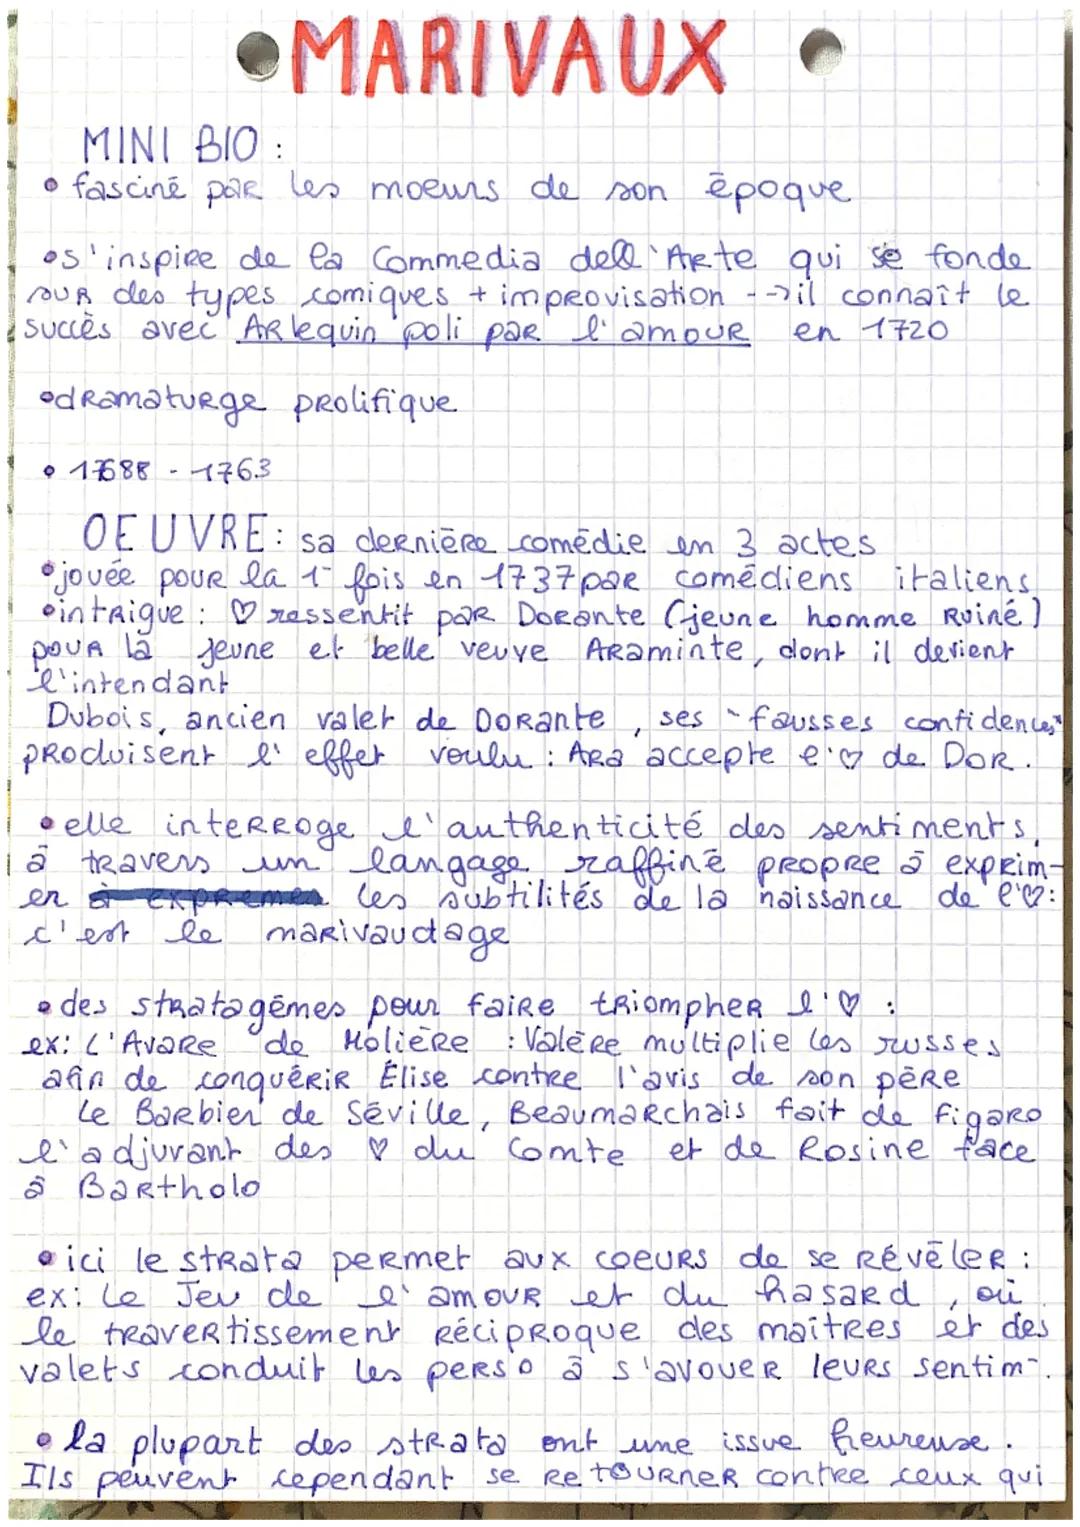 MARIVAUX
MINI BIO :
• fasciné par les moeurs de son époque
• s'inspire de la Commedia dell'Arte qui se fonde
sur des types comiques + improvisation --> il connaît le
succès avec Arlequin poli par l'amour en 1720
• dramaturge prolifique
• 1688 - 1763
OEUVRE : sa dernière comédie en 3 actes
• jouée pour la 1- fois en 1737 par comédiens italiens
• intrigue : ♡ ressentit par Dorante (jeune homme ruiné)
pour la jeune et belle veuve Araminte, dont il devient
l'intendant
Dubois, ancien valet de Dorante, ses "fausses confidences"
produisent l'effet voulu : Ara accepte l'♡ de Dor.
• elle interroge l'authenticité des sentiments,
à travers un langage raffiné propre à exprim-
er les subtilités de la naissance de l'♡ :
c'est le marivaudage
• des stratagèmes pour faire triompher l'♡ :
ex: L'Avare de Molière : Valère multiplie les russes
afin de conquérir Élise contre l'avis de son père
Le Barbier de Séville, Beaumarchais fait de Figaro
l'adjuvant des ♡ du Comte et de Rosine face
à Bartholo
• ici le strata permet aux coeurs de se révéler :
ex: Le Jeu de l'amour et du hasard, où
le travertissement réciproque des maîtres et des
valets conduit les perso à s'avouer leurs sentim-.
• la plupart des strata ont une issue heureuse.
Ils peuvent cependant se retourner contre ceux qui